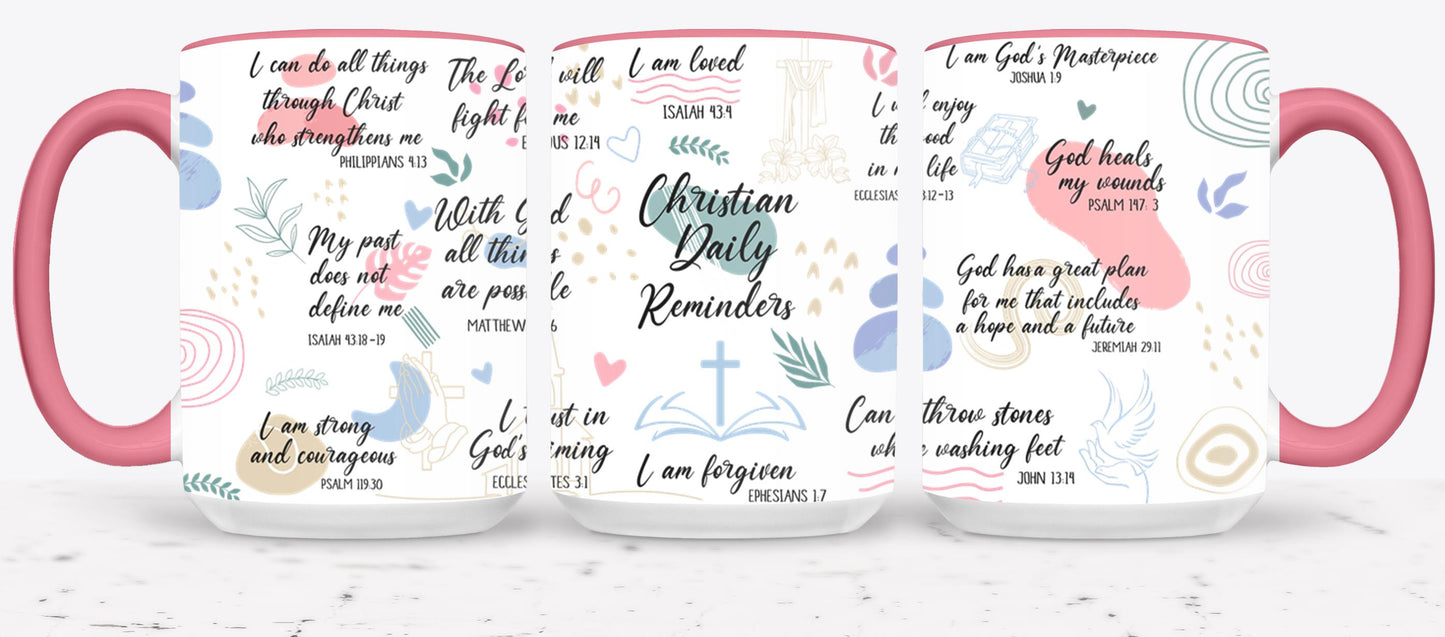 I can do all things
through Christ
who strengthens me
PHILIPPIANS 4:13
The Lo
fight f
My past
does not
define me
ISAIAH 43:18-19
With G
all thin
are poss
MATTHEW
I am strong
and courageous
PSALM 119:30
I t
God's
ECCLES
will
me
US 12:14
I am loved
ISAIAH 43:4
Christian
Daily
Reminders
ust in
iming
TES 3:1
I am forgiven
EPHESIANS 1:7
I w
th
in m
ECCLESIAS
Can
wh
I am God's Masterpiece
JOSHUA 1:9
enjoy
ood
life
3:12-13
God heals
my wounds
PSALM 147: 3
God has a great plan
for me that includes
a hope and a future
JEREMIAH 29:11
throw stones
washing feet
JOHN 13:14